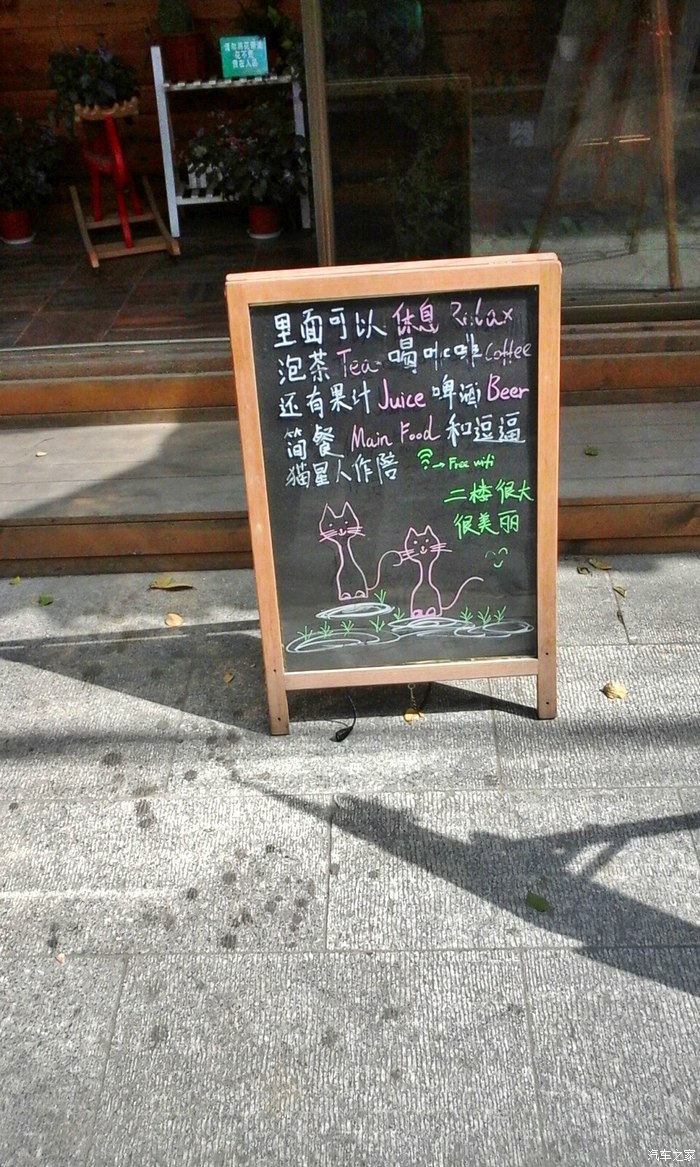 里面可以 休息 Relax
泡茶 Tea 喝咖啡 Coffee
还有果汁 Juice 啤酒 Beer
简餐 Main Food 和逗逼
猫星人作陪 → Free wifi
二楼很大
很美丽
汽车之家